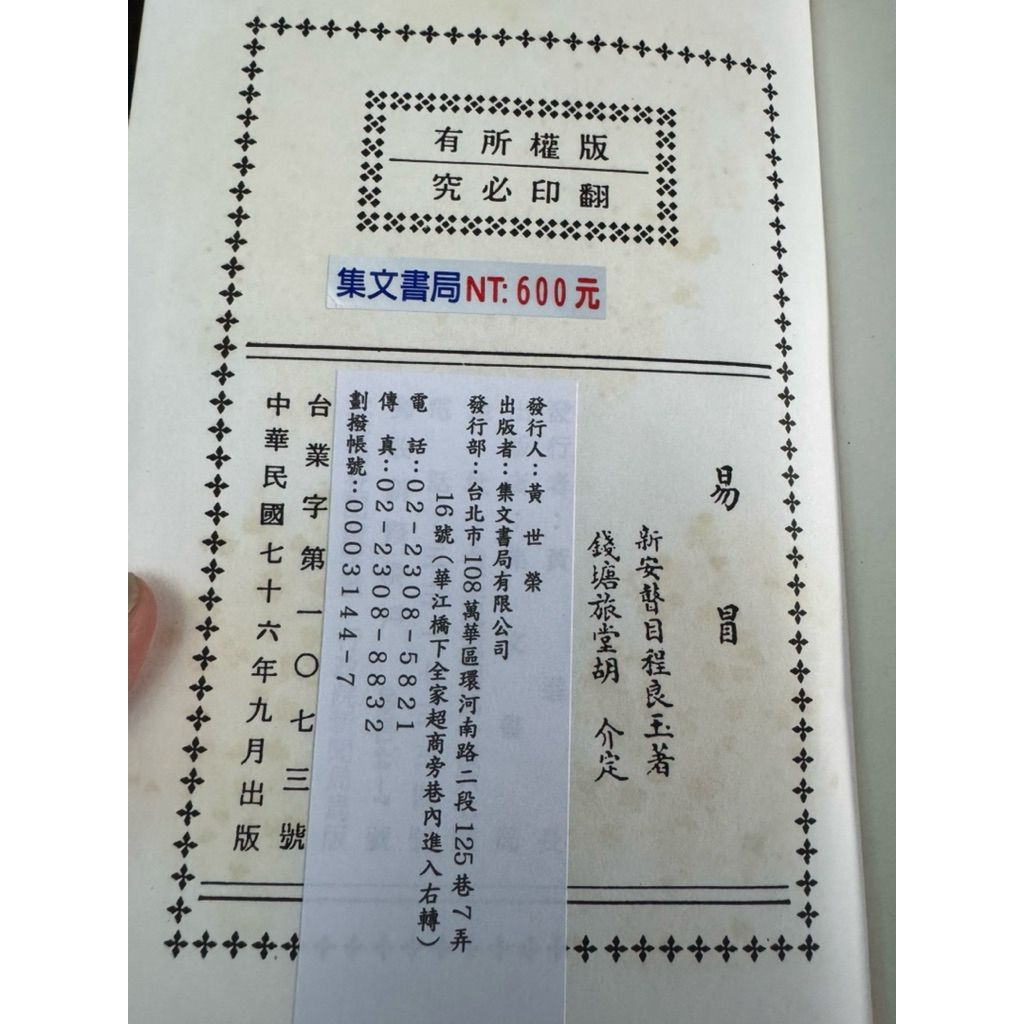 版權所有
翻印必究
集文書局NT:600元
易冒
新安瞽目程良玉著
錢塘旅堂胡 介定
發行人：黃世榮
出版者：集文書局有限公司
發行部：台北市108萬華區環河南路二段125巷7弄
16號（華江橋下全家超商旁巷內進入右轉）
電 話：02-2308-5821
傳 真：02-2308-8832
劃撥帳號：0003144-7
台業字第一〇七三號
中華民國七十六年九月出版